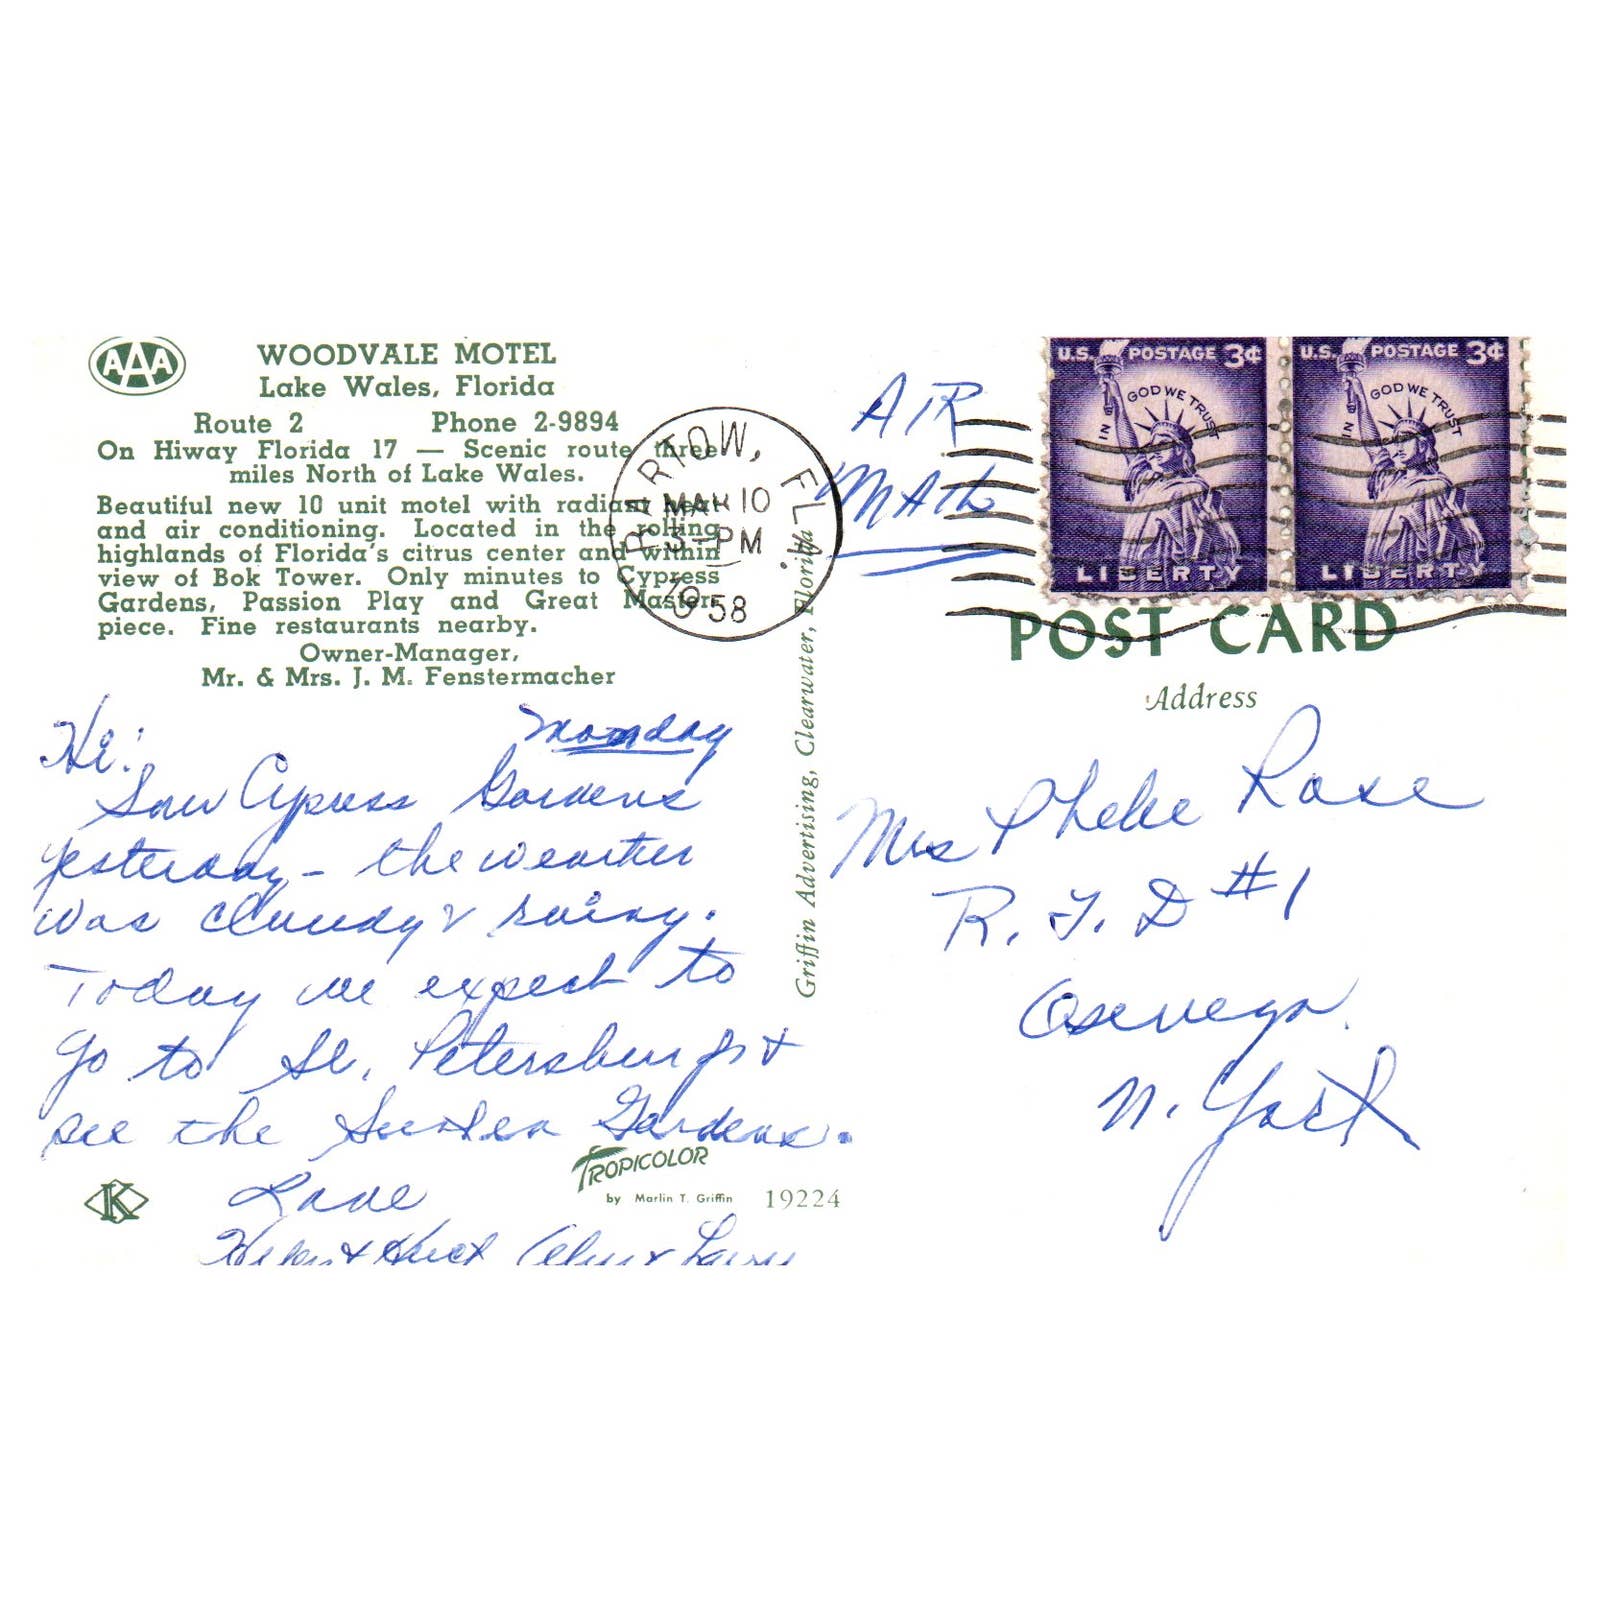 AAA
WOODVALE MOTEL
Lake Wales, Florida
Route 2 Phone 2-9894
On Hiway Florida 17 — Scenic route three
miles North of Lake Wales.
Beautiful new 10 unit motel with radiant heat
and air conditioning. Located in the rolling
highlands of Florida's citrus center and within
view of Bok Tower. Only minutes to Cypress
Gardens, Passion Play and Great Master-
piece. Fine restaurants nearby.
Owner-Manager,
Mr. & Mrs. J. M. Fenstermacher
Monday
Hi!
Saw Cypress Gardens
yesterday – the weather
was cloudy & rainy.
Today we expect to
go to St. Petersburg &
see the Sunken Gardens.
Love
Helen &
K
TROPICOLOR
by Marlin T. Griffin 19224
Griffin Advertising, Clearwater, Florida
BARTOW, FLA.
MAR 10
PM
1958
AIR
MAIL
U.S. POSTAGE 3¢
IN GOD WE TRUST
LIBERTY
U.S. POSTAGE 3¢
IN GOD WE TRUST
LIBERTY
POST CARD
Address
Mrs Phebe Rose
R.F.D #1
Oswego
N. York